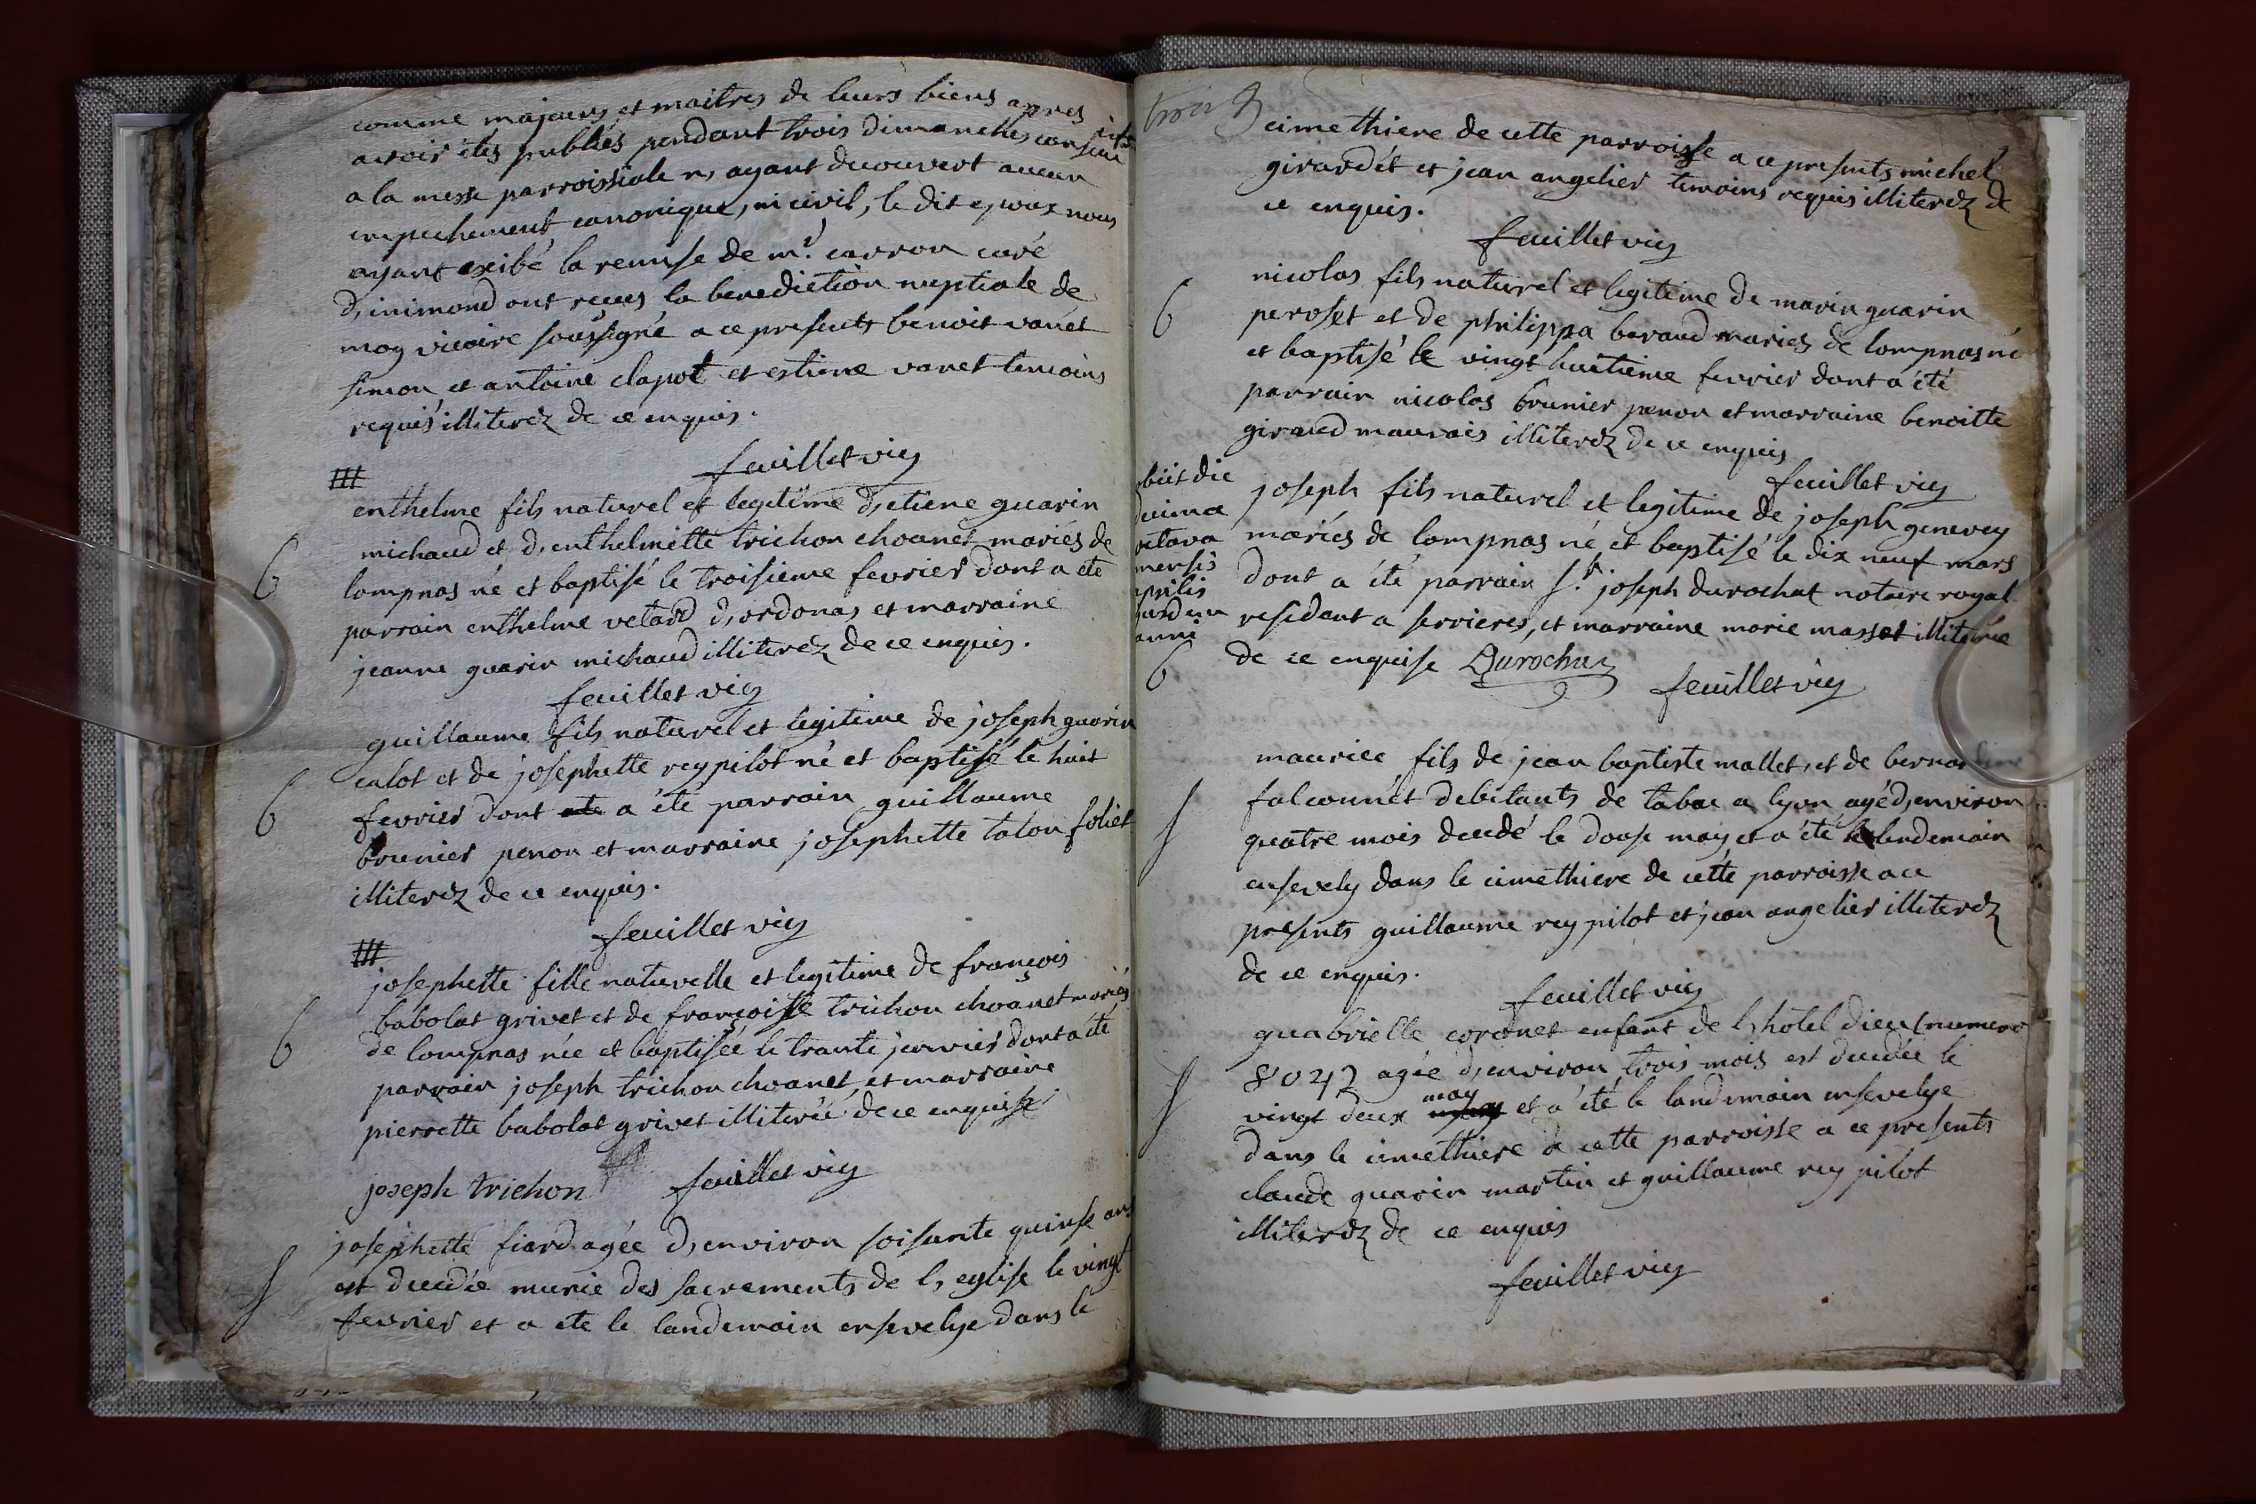 comme majeurs et maitres de leurs biens apres
avoir étés publiés pendant trois dimanches consecutifs
a la messe parroissiale n, ayant decouvert aucun
empechement canonique, ni civil, le dit epoux nous
ayant exibé la remise de mr. carron curé
d, inimond ont reçus la benediction nuptiale de
moy vicaire soussigné a ce presents benoit vanet
simon et antoine clapot et estiene vanet temoins
requis illiterez de ce enquis.
feuillet vic
enthelme fils naturel et legitime d, etiene guarin
michaud et d, enthelmette trichon choanet mariés de
6
lompnas né et baptisé le troisieme fevrier dont a été
parrain enthelme velard d, ordonas et marraine
jeanne guarin michaud illiterez de ce enquis.
feuillet vic
guillaume fils naturel et legitime de joseph guarin
calot et de josephette rey pilot né et baptisé le huit
6
fevrier dont a été parrain guillaume
brunier penon et marraine josephette talon foliet
illiterez de ce enquis.
feuillet vic
josephette fille naturelle et legitime de françois
babolat grivet et de françoise trichon choanet mariés
6
de lompnas née et baptisée le trante janvier dont a été
parrain joseph trichon choanet et marraine
pierrette babolat grivet illiterée de ce enquise
joseph trichon feuillet vic
josephette fiard agée d, environ soisante quinse ans
S
est decedée munie des sacrements de l, eglise le vingt
fevrier et a ete le landemain ensevelye dans le
trois
cimethiere de cette parroisse a ce presents michel
girardét et jean angelier temoins requis illiterez de
ce enquis.
feuillet vic
nicolas fils naturel et legitime de marin guarin
6
peroset et de philippa beraud mariez de lompnas né
et baptisé le vingt huitieme fevrier dont a été
parrain nicolas brunier penon et marraine benoitte
giraud mauvais illiterez de ce enquis
feuillet vic
obiit die
decima
octava
mensis
aprilis
ejusdem
anni
6
joseph fils naturel et legitime de joseph genevey
mariés de lompnas né et baptisé le dix neuf mars
dont a été parrain sr. joseph durochat notaire royal
resident a serrieres, et marraine marie masset illiterée
de ce enquise Durochat
feuillet vic
maurice fils de jean baptiste mallet, et de bernardine
falconnét debitants de tabac a lyon agé d, environ
S
quatre mois decedé le doose may et a été le lendemain
ensevely dans le cimethiere de cette parroisse a ce
presents guillaume rey pilot et jean angelier illiterez
de ce enquis.
feuillet vic
guabrielle coronet enfant de l, hôtel dieu numero
8042 agée d, environ trois mois est decedée le
S
vingt deux may et a été le landemain ensevelye
dans le cimethiere de cette parroisse a ce presents
claude guarin martin et guillaume rey pilot
illiterez de ce enquis
feuillet vic